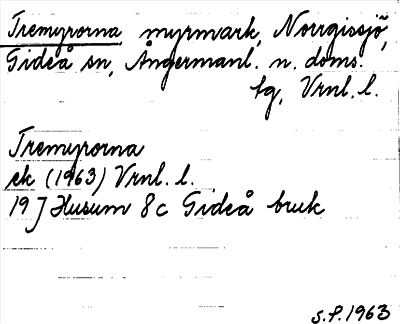 Tremyrorna myrmark, Norrgissjö,
Gideå sn, Ångermanl. n. doms.
tg, Vrnl. l.
Tremyrorna
ek (1963) Vrnl. l.
19 J Husum 8c Gideå bruk
S.P. 1963